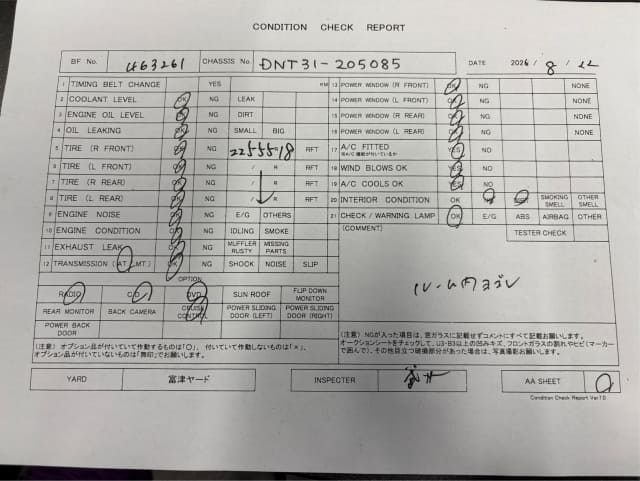 CONDITION CHECK REPORT
BF No. 463261 CHASSIS No. DNT31-205085 DATE 2024/8/22
1 TIMING BELT CHANGE YES KM
2 COOLANT LEVEL OK NG LEAK
3 ENGINE OIL LEVEL OK NG DIRT
4 OIL LEAKING OK NG SMALL BIG
5 TIRE (R FRONT) OK NG 2255518 RFT
6 TIRE (L FRONT) OK NG / R RFT
7 TIRE (R REAR) OK NG / R RFT
8 TIRE (L REAR) OK NG / R RFT
9 ENGINE NOISE OK NG E/G OTHERS
10 ENGINE CONDITION OK NG IDLING SMOKE
11 EXHAUST LEAK OK NG MUFFLER RUSTY MISSING PARTS
12 TRANSMISSION (AT, MT) OK NG SHOCK NOISE SLIP
OPTION
RADIO CD DVD SUN ROOF FLIP DOWN MONITOR
REAR MONITOR BACK CAMERA CRUISE CONTROL POWER SLIDING DOOR (LEFT) POWER SLIDING DOOR (RIGHT)
POWER BACK DOOR
(注意) オプション品が付いていて作動するものは「〇」、付いていて作動しないものは「×」、
オプション品が付いていないものは「無印」でお願いします。
13 POWER WINDOW (R FRONT) OK NG NONE
14 POWER WINDOW (L FRONT) OK NG NONE
15 POWER WINDOW (R REAR) OK NG NONE
16 POWER WINDOW (L REAR) OK NG NONE
17 A/C FITTED YES NO
18 WIND BLOWS OK YES NO
19 A/C COOLS OK YES NO
20 INTERIOR CONDITION OK SMOKING SMELL OTHER SMELL
21 CHECK / WARNING LAMP OK E/G ABS AIRBAG OTHER
(COMMENT) TESTER CHECK
ルーム内ヨゴレ
(注意) NGが入った項目は、窓ガラスに記載せずコメントにすべて記載お願いします。
オークションシートをチェックして、U3・B3以上の凹みキズ、フロントガラスの割れやヒビ(マーカー
で囲んで)、その他目立つ破損部分があった場合は、写真撮影お願いします。
YARD 富津ヤード INSPECTER AA SHEET
Condition Check Report Ver10